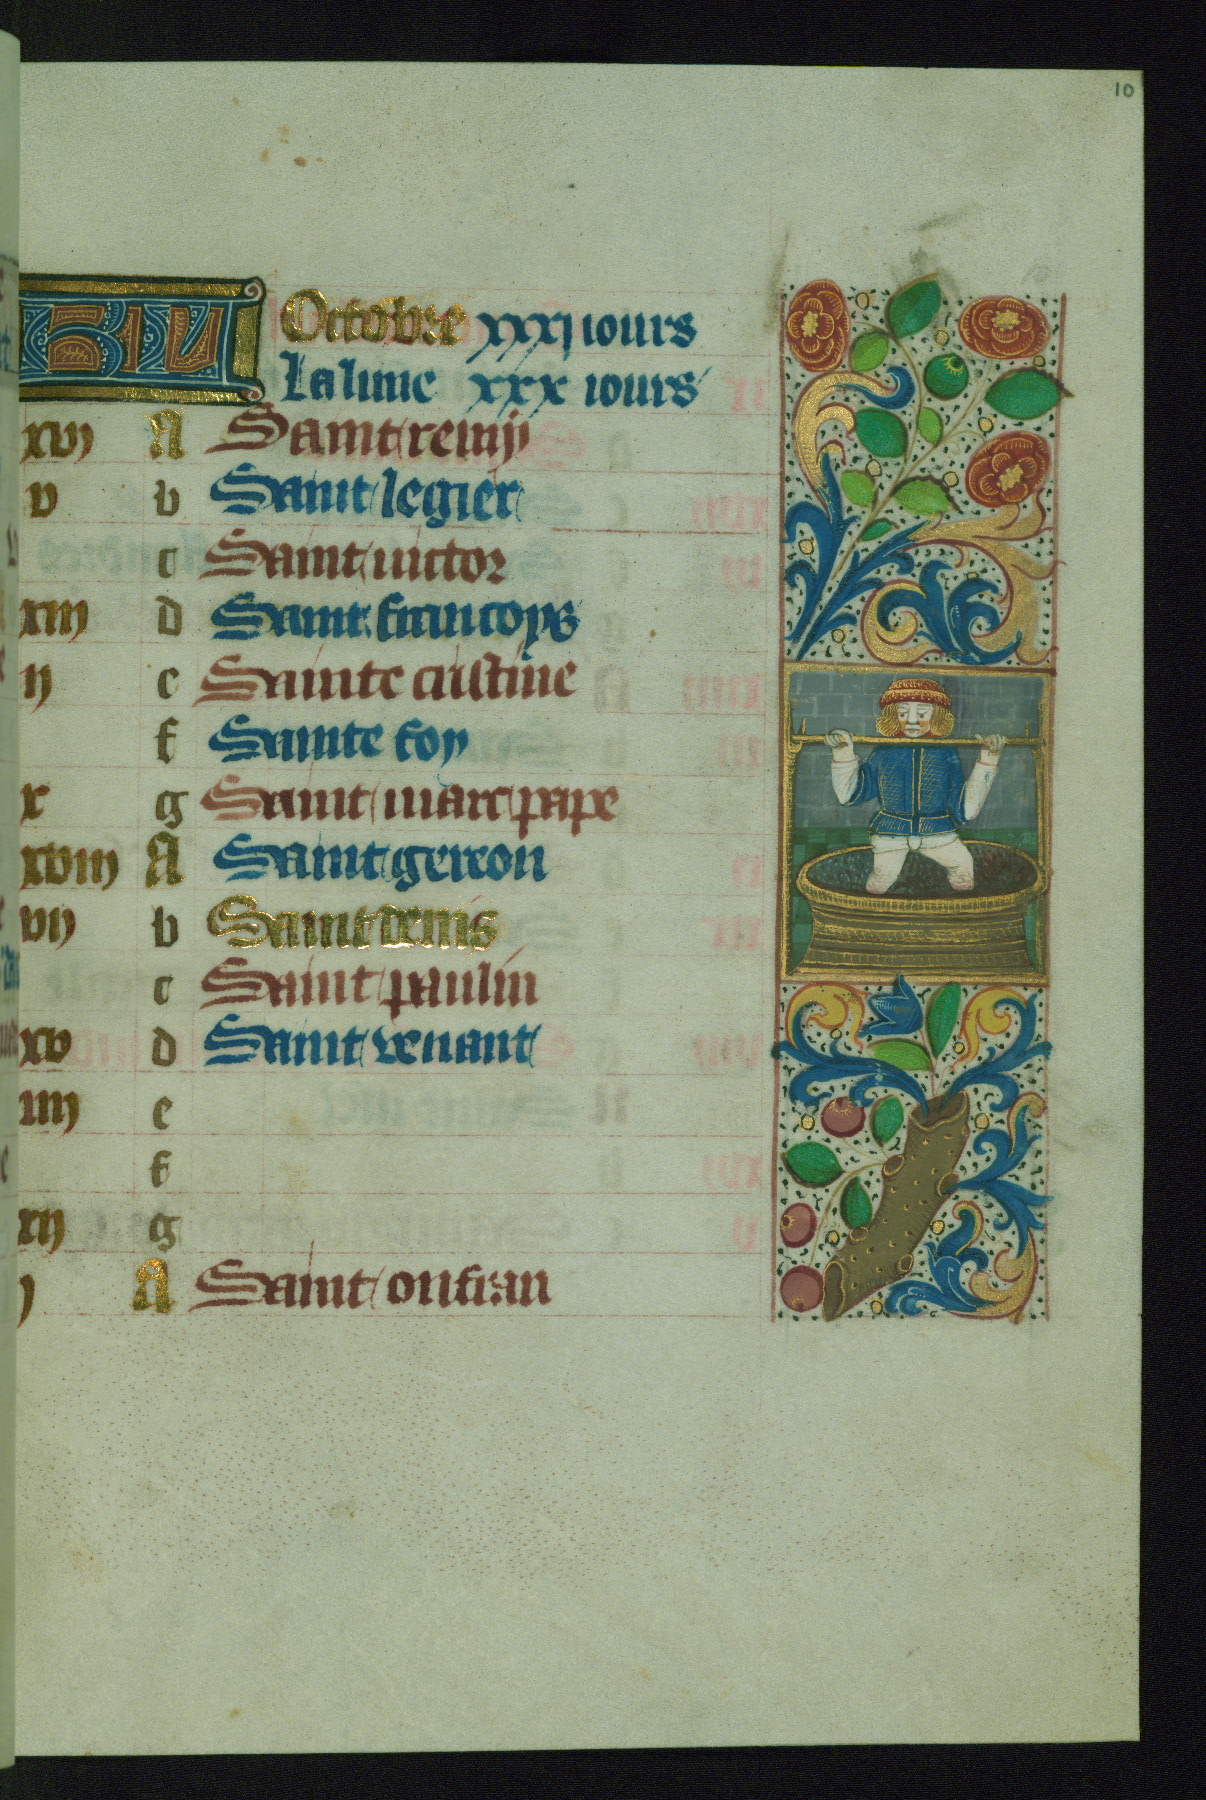 10
Octobre xxxj iours
La lune xxx iours
xvj A Saint remy
v b Saint legier
c Saint victor
xiij d Saint francoys
ij e Sainte cristine
f Sainte foy
x g Saint marc pape
xviij A Saint gereon
vij b Saint denis
c Saint paulin
xv d Saint venant
iiij e
f
xij g
j A Saint onfran